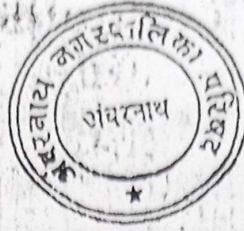 अंबरनाथ नगरपालिका परिषद
अंबरनाथ